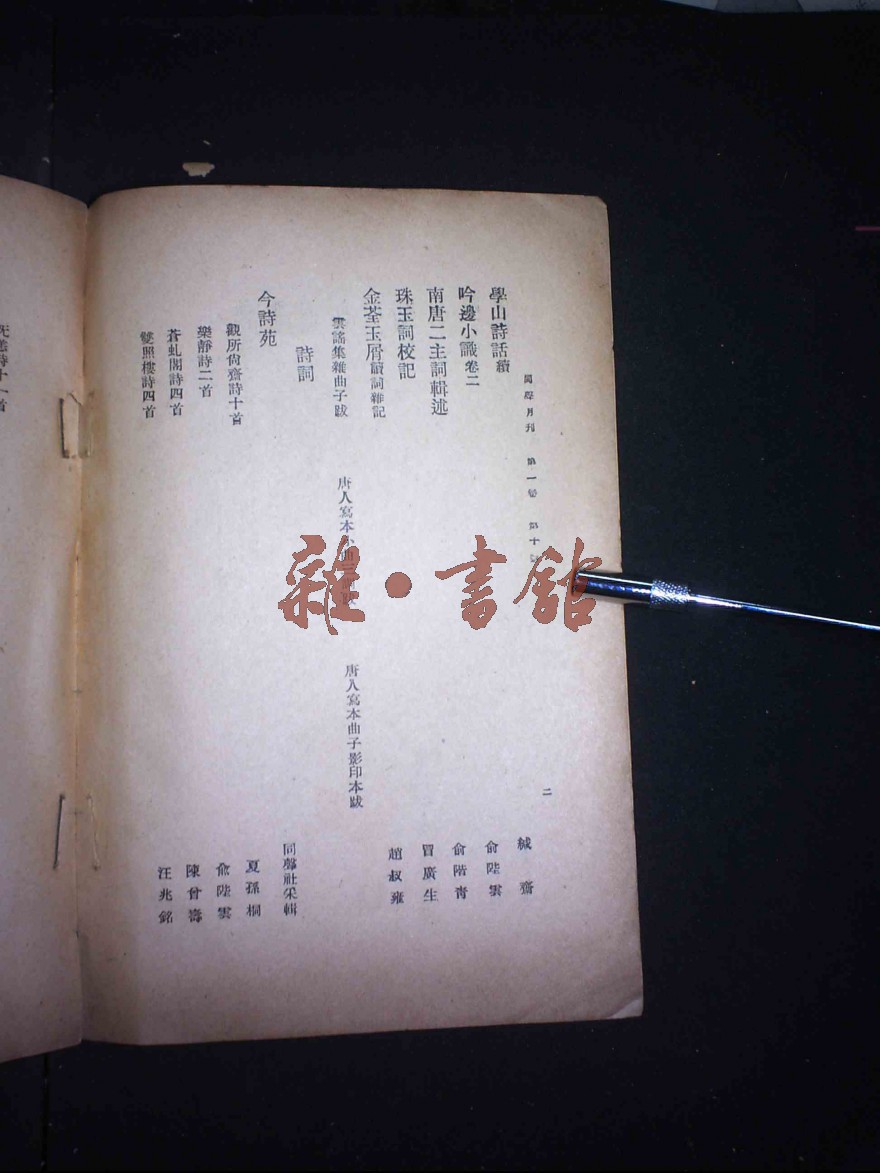 同聲月刊 第一卷 第十
二
學山詩話續 緘齋
吟邊小識卷二 俞陛雲
南唐二主詞輯述 俞階青
珠玉詞校記 冒廣生
金荃玉屑讀詞雜記 趙叔雍
雲謠集雜曲子跋 唐人寫本 唐人寫本曲子影印本跋
詩詞
今詩苑 同聲社采輯
觀所尚齋詩十首 夏孫桐
樂靜詩二首 俞陛雲
蒼虬閣詩四首 陳曾壽
雙照樓詩四首 汪兆銘
詩十一首
雜·書館